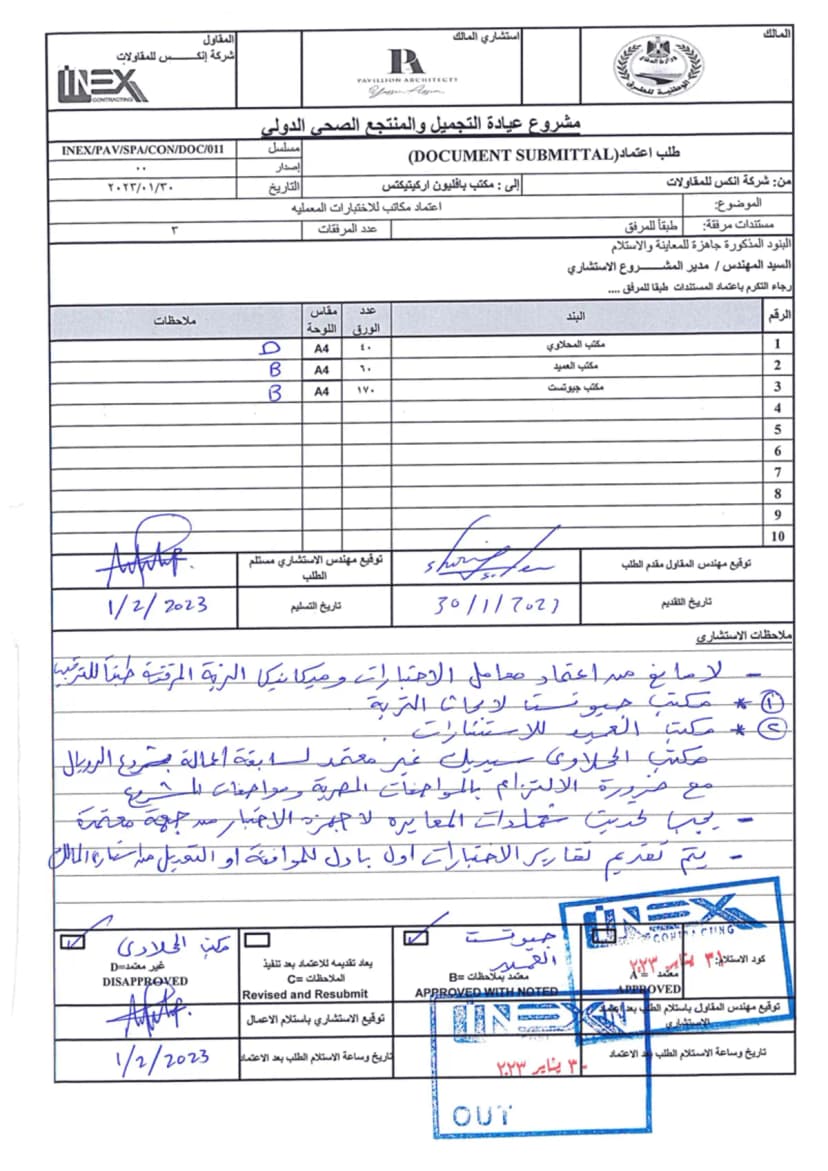 المالك
استشاري المالك
المقاول
شركة إنكس للمقاولات
الوطنية للطرق
PAVILLION ARCHITECTS
INEX
CONTRACTING
مشروع عيادة التجميل والمنتجع الصحي الدولي
طلب اعتماد(DOCUMENT SUBMITTAL)
مسلسل
INEX/PAV/SPA/CON/DOC/011
إصدار
٠٠
من: شركة انكس للمقاولات
إلى : مكتب بافليون اركيتيكتس
التاريخ
٢٠٢٣/٠١/٣٠
الموضوع:
اعتماد مكاتب للاختبارات المعمليه
مستندات مرفقة:
طبقاً للمرفق
عدد المرفقات
٣
البنود المذكورة جاهزة للمعاينة والاستلام
السيد المهندس / مدير المشروع الاستشاري
رجاء التكرم باعتماد المستندات طبقا للمرفق ....
الرقم
البند
عدد الورق
مقاس اللوحة
ملاحظات
1 مكتب المحلاوي ٤٠ A4 D
2 مكتب العميد ٦٠ A4 B
3 مكتب جيوتست ١٧٠ A4 B
4
5
6
7
8
9
10
توقيع مهندس المقاول مقدم الطلب
توقيع مهندس الاستشاري مستلم الطلب
تاريخ التقديم
30/1/2023
تاريخ التسليم
1/2/2023
ملاحظات الاستشاري
- لا مانع من اعتماد معامل الاختبارات وميكانيكا التربة المرفقة طبقاً للترتيب
① * مكتب جيوتست لابحاث التربة
② * مكتب العميد للاستشارات
مكتب المحلاوى غير معتمد لسابقة أعمالة بمشروع الرويال
مع ضرورة الالتزام بالمواصفات المصرية ومواصفات المشروع
- يجب تحديث شهادات المعايره لاجهزة الاختبار من جهة معتمدة
- يتم تقديم تقارير الاختبارات اول باول للموافقة او التعديل من المالك
كود الاستلام:
A = معتمد
APPROVED
جيوتست
العميد
B= معتمد بملاحظات
APPROVED WITH NOTED
يعاد تقديمه للاعتماد بعد تنفيذ
الملاحظات =C
Revised and Resubmit
مكتب المحلاوى
D=غير معتمد
DISAPPROVED
توقيع مهندس المقاول باستلام الطلب بعد اعتماد الاستشاري
توقيع الاستشاري باستلام الاعمال
تاريخ وساعة الاستلام الطلب بعد الاعتماد
تاريخ وساعة الاستلام الطلب بعد الاعتماد
1/2/2023
INEX
CONTRACTING
٣١ يناير ٢٠٢٣
INEX
٣٠ يناير ٢٠٢٣
OUT